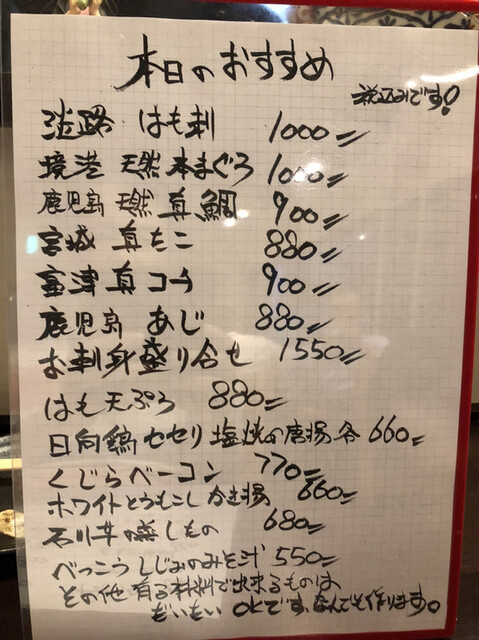 本日のおすすめ
税込みです!
淡路 はも刺 1000-
境港 天然本まぐろ 1000-
鹿児島 天然 真鯛 900-
宮城 真たこ 880-
富津 真コチ 900-
鹿児島 あじ 880-
お刺身盛り合せ 1550-
はも天ぷら 880-
日向鶏セセリ 塩焼の唐揚 各660-
くじらベーコン 770-
ホワイトとうもろこし かき揚 660-
石川芋の蒸しもの 680-
べっこうしじみのみそ汁 550-
その他 有る材料で出来るものは
だいたい OKです。なんでも作ります。